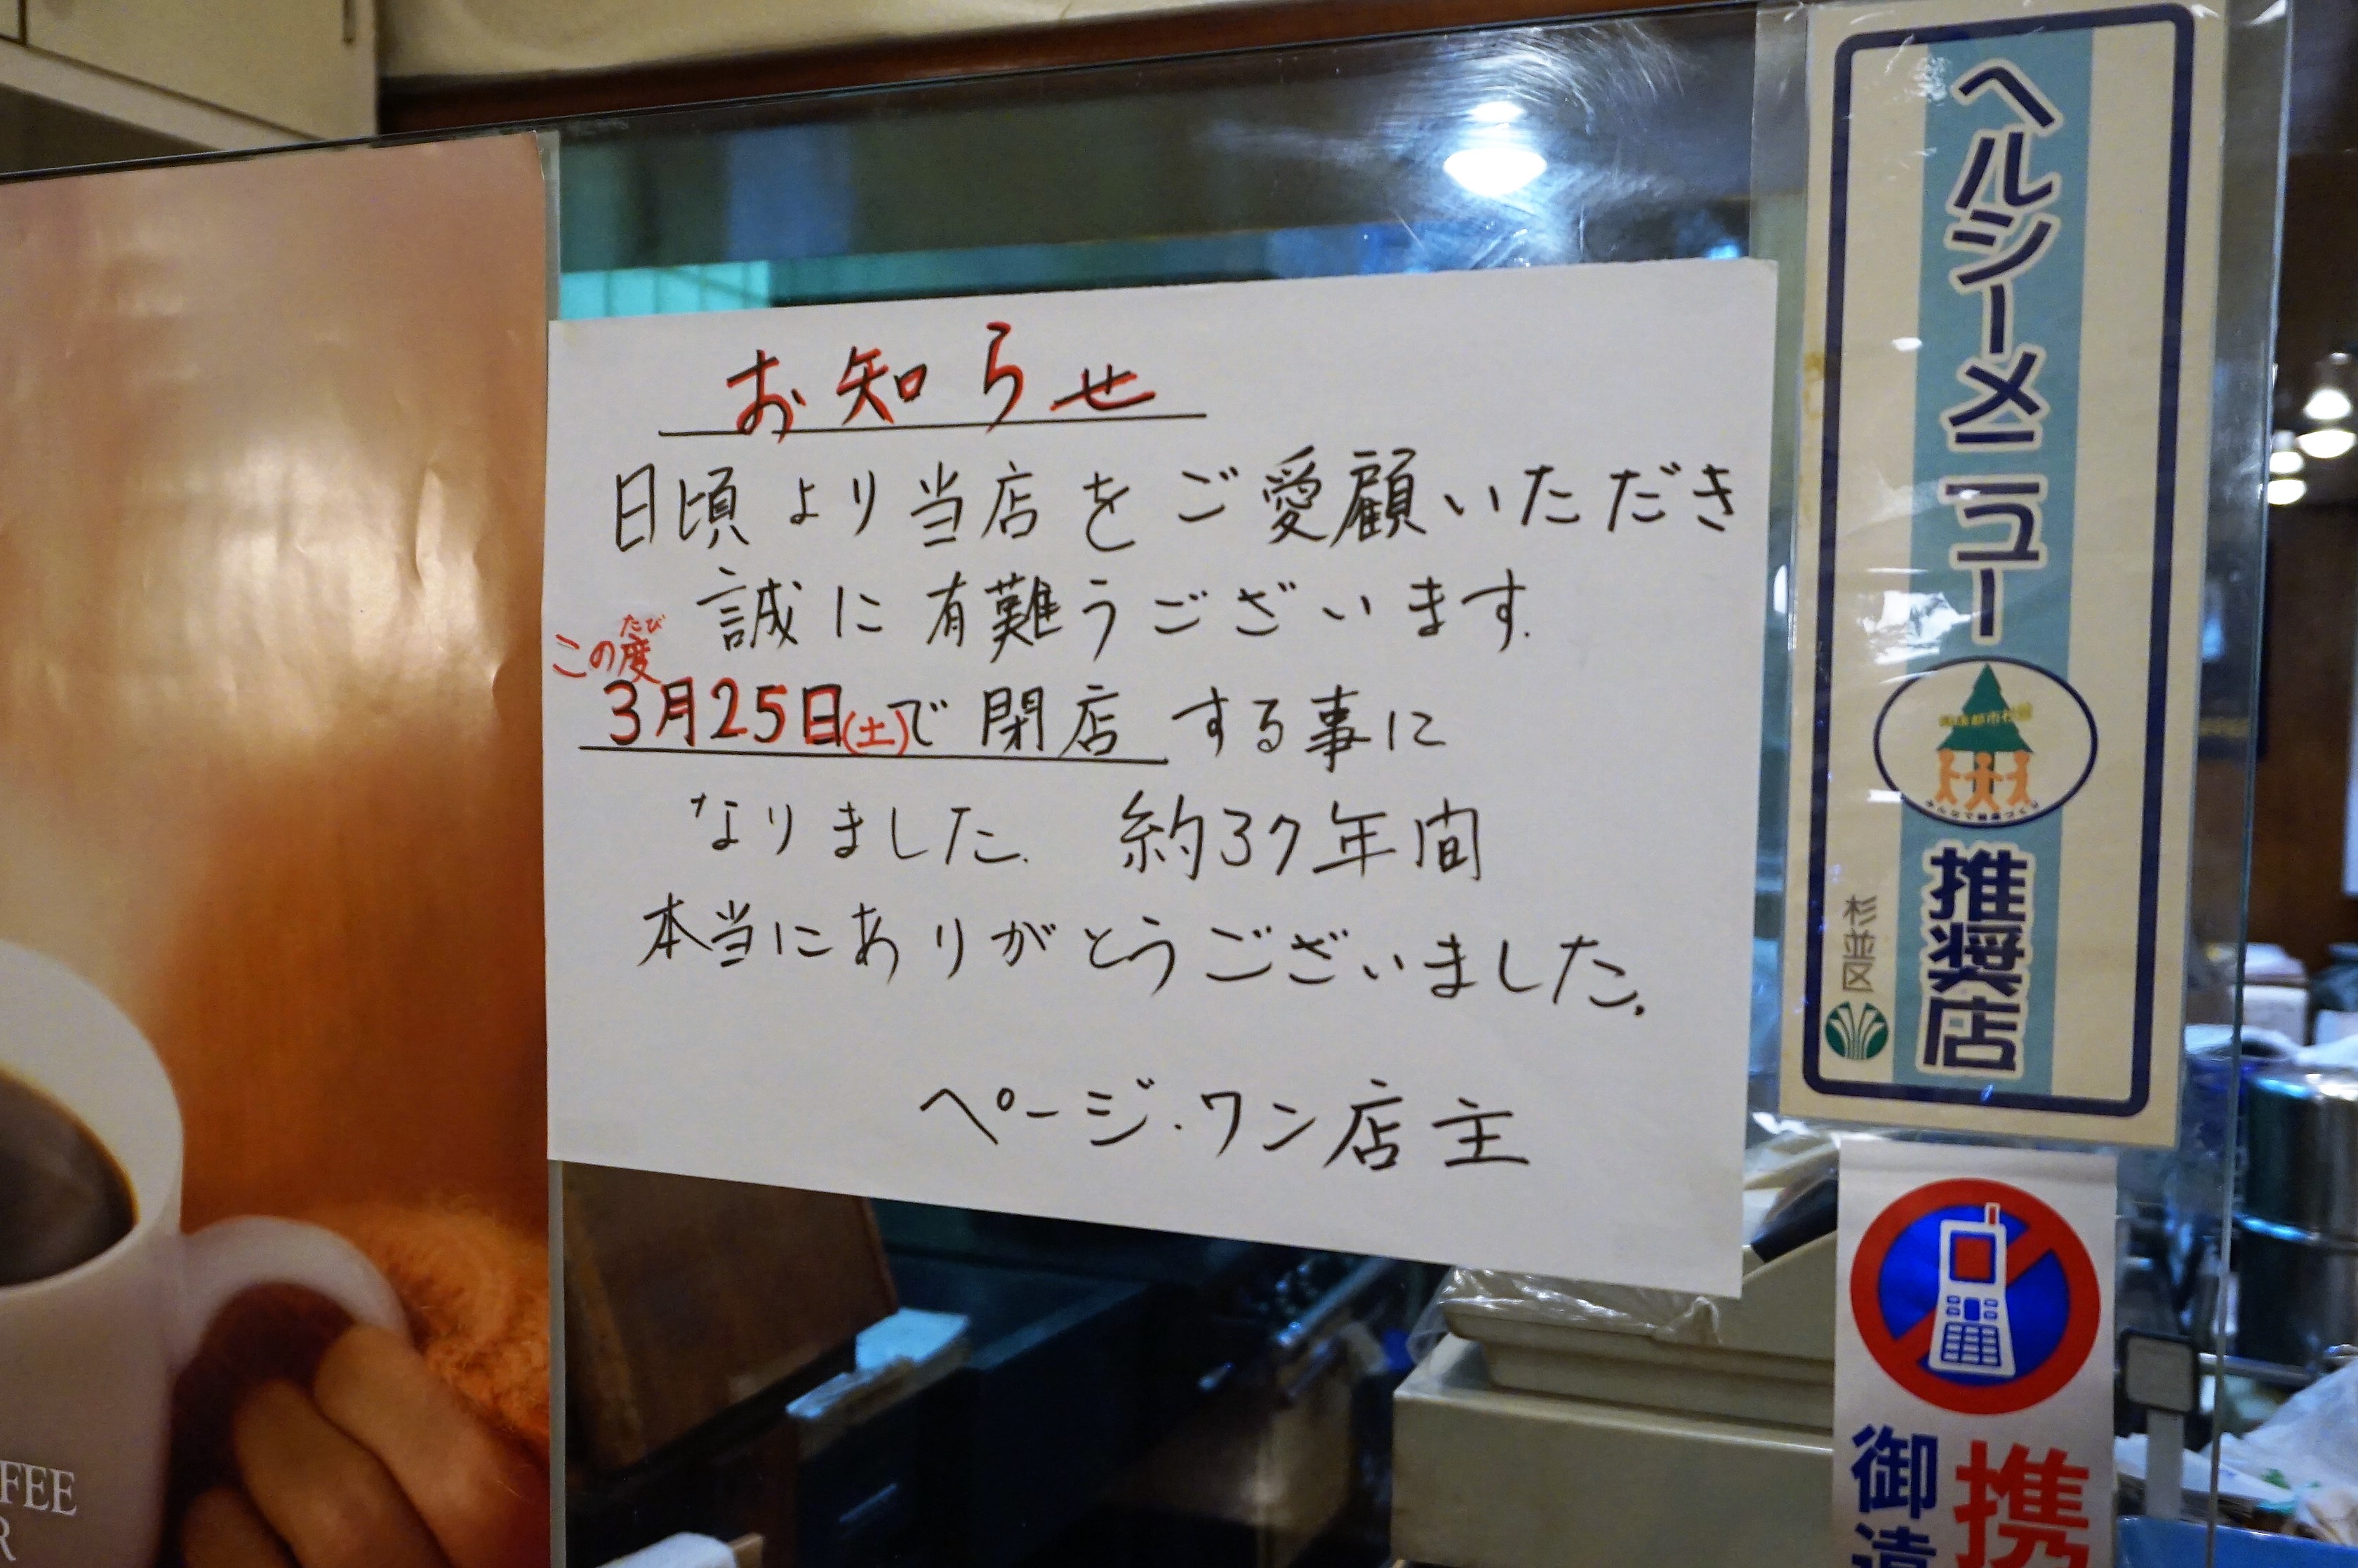 お知らせ
日頃より当店をご愛顧いただき
誠に有難うございます.
この度
たび
3月25日(土)で閉店する事に
なりました. 約37年間
本当にありがとうございました.
ページ・ワン店主
ヘルシーメニュー
みんなで健康づくり
推奨店
杉並区
携
御遠
FEE
R